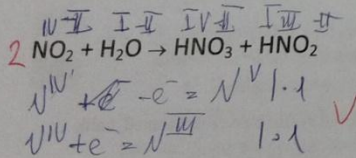 IV -II I -II IV -II I III -II
2 NO₂ + H₂O → HNO₃ + HNO₂
N^IV - e⁻ = N^V | · 1
N^IV + e⁻ = N^III | · 1